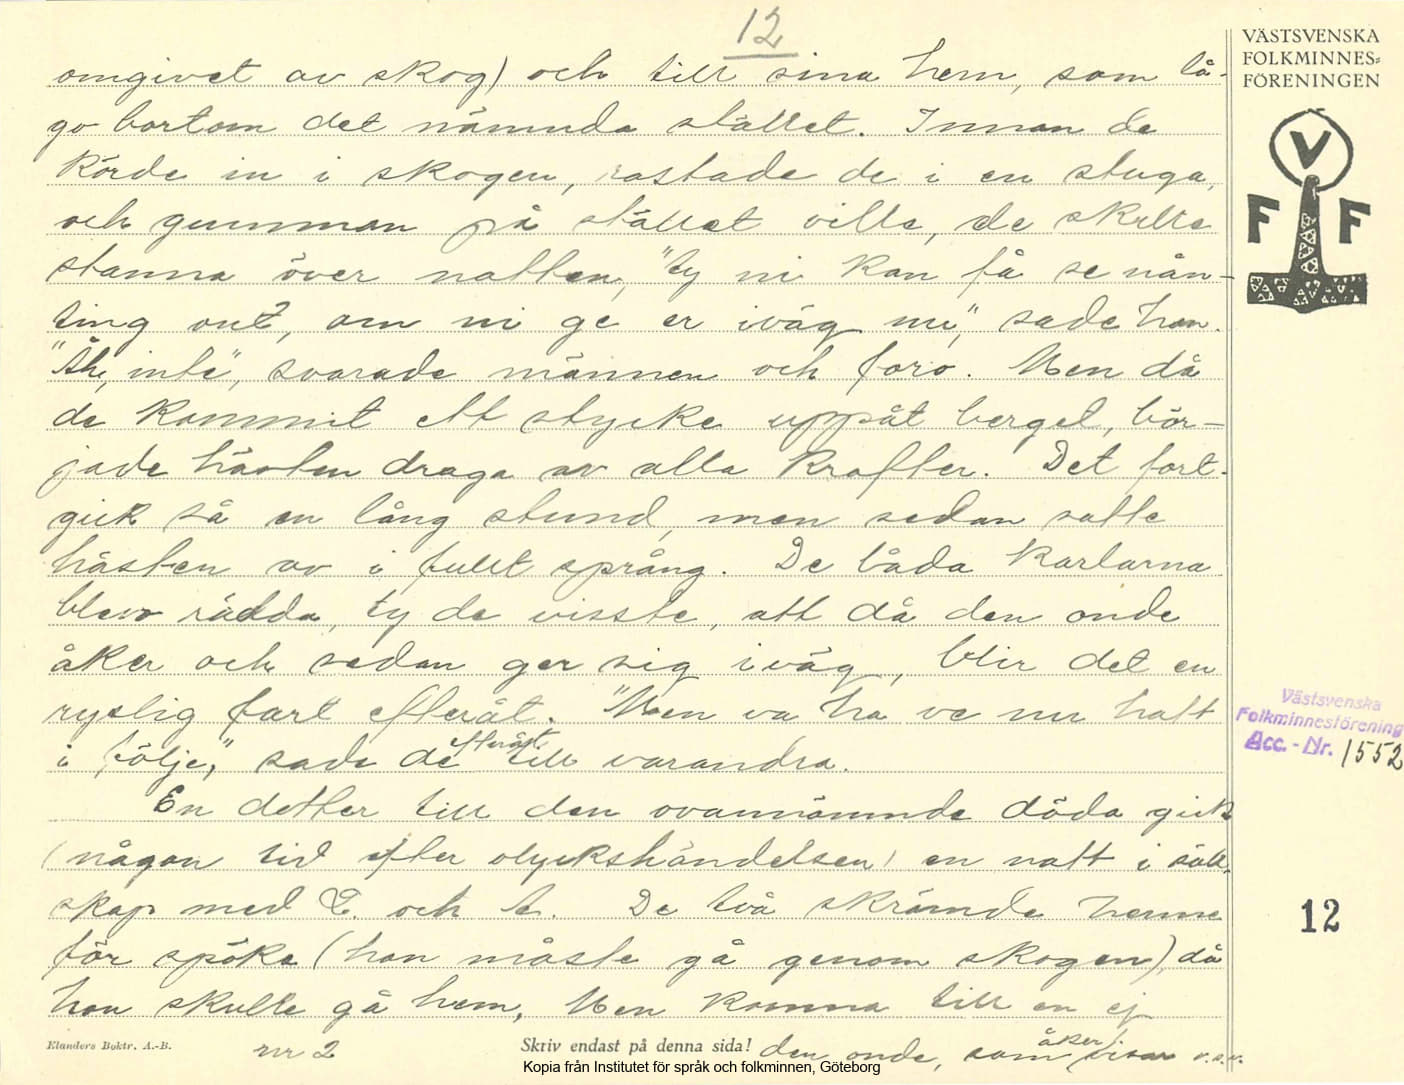 12
VÄSTSVENSKA
FOLKMINNES-
FÖRENINGEN
V
F F
omgivet av skog) och till sina hem, som lå-
go bortom det nämnda stället. Innan de
körde in i skogen, rastade de i en stuga,
och gumman på stället ville, de skulle
stanna över natten, "ty ni kan få se nån-
ting ont, om ni ge er iväg nu," sade hon.
"Äh, inte", svarade männen och foro. Men då
de kommit ett stycke uppåt berget, bör-
jade hästen draga av alla krafter. Det fort-
gick så en lång stund, men sedan satte
hästen av i fullt språng. De båda karlarna
blevo rädda, ty de visste, att då den onde
åker och sedan ger sig iväg, blir det en
ryslig fart efteråt. "Men va ha ve nu haft
i följe," sade de efteråt till varandra.
En dotter till den ovannämnde döda gick
(någon tid efter olyckshändelsen) en natt i säll-
skap med E. och A. De två skrämde henne
för spöke (hon måste gå genom skogen), då
hon skulle gå hem, Men komna till en ej
Västsvenska
Folkminnesförening
Acc.-Nr. 1552
12
Elanders Boktr. A.-B.
nr 2
Skriv endast på denna sida!
den onde, som åker, visar v.s.v.
Kopia från Institutet för språk och folkminnen, Göteborg